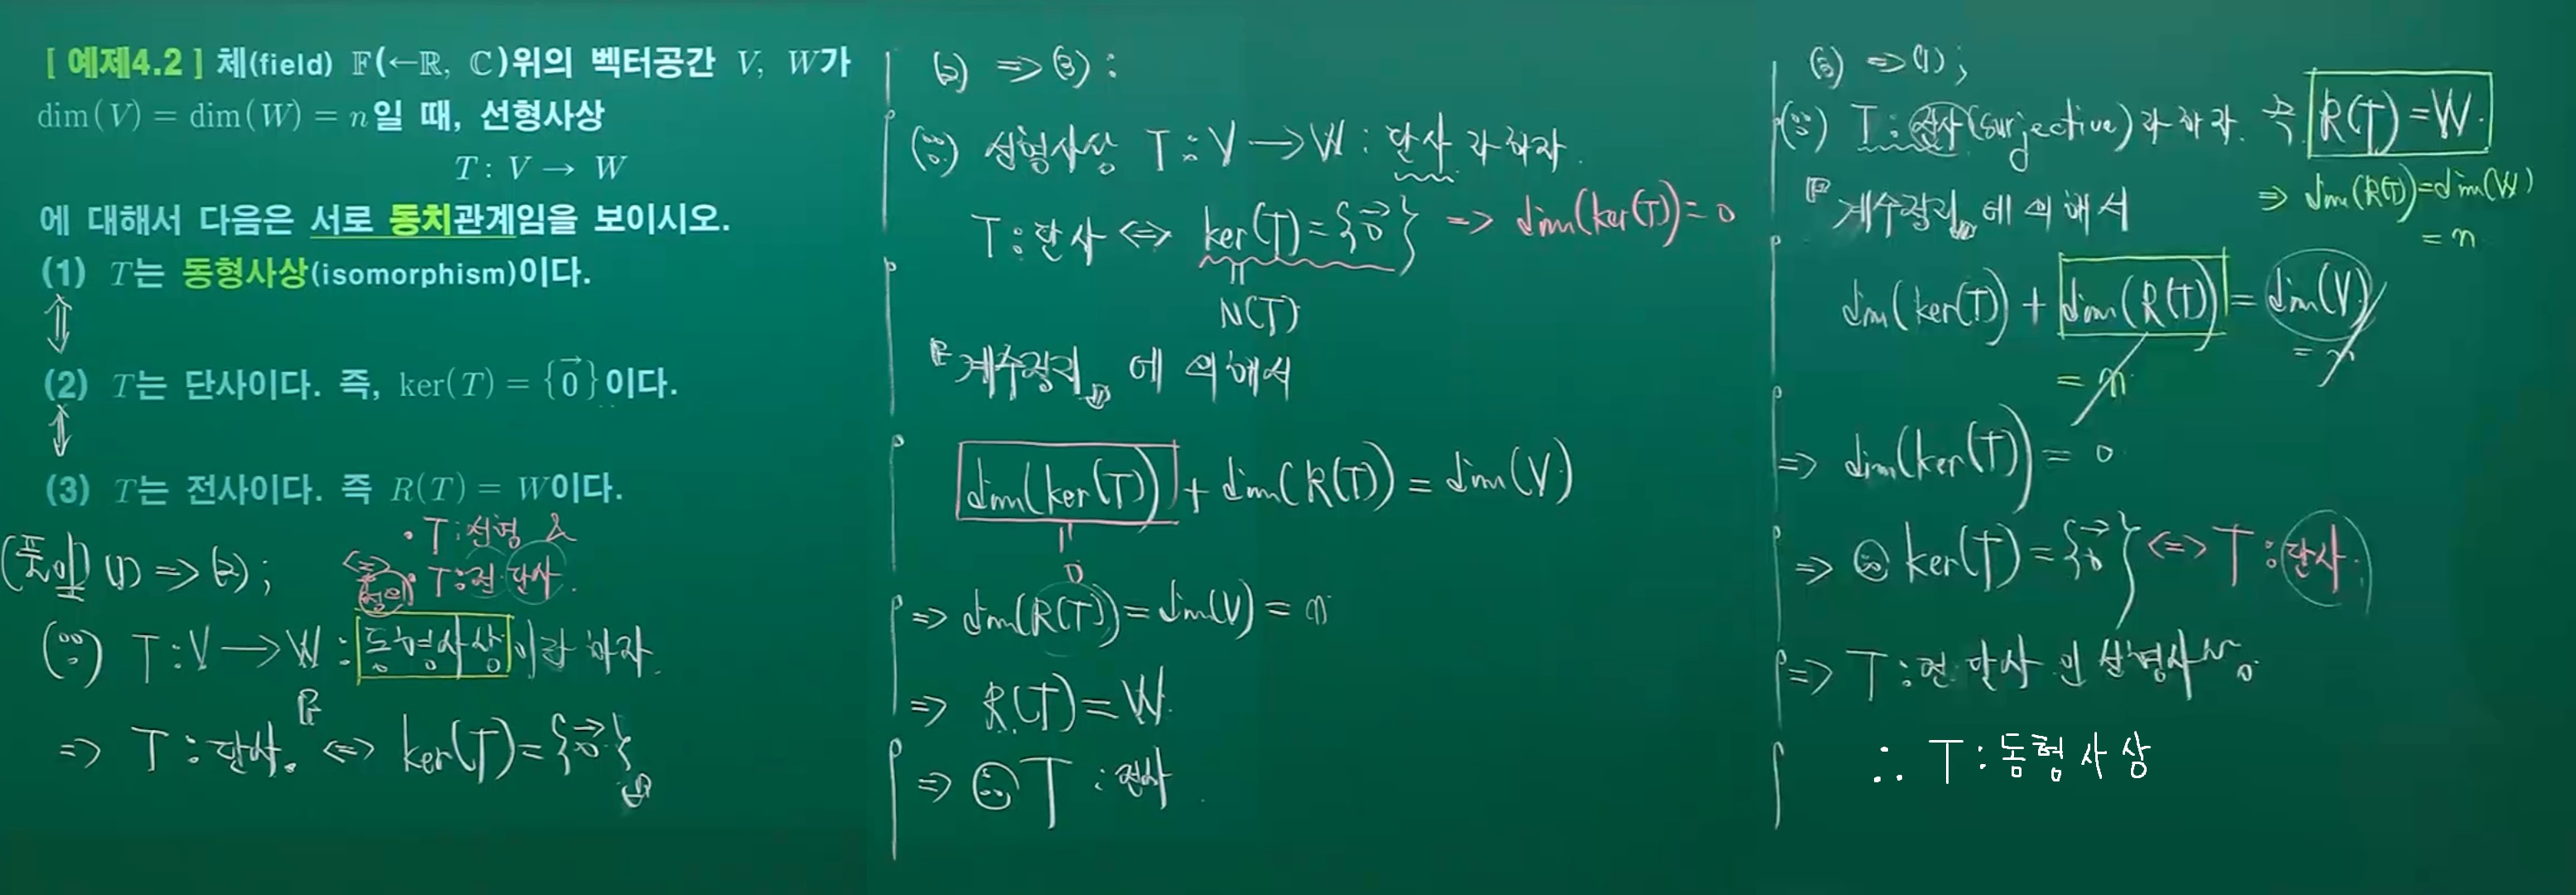 [ 예제4.2 ] 체(field) 𝔽(←ℝ, ℂ)위의 벡터공간 V, W가
dim(V) = dim(W) = n일 때, 선형사상
T : V → W
에 대해서 다음은 서로 동치관계임을 보이시오.
(1) T는 동형사상(isomorphism)이다.
⇕
(2) T는 단사이다. 즉, ker(T) = {0⃗}이다.
⇕
(3) T는 전사이다. 즉 R(T) = W이다.
(풀이) (1) => (2) ;
<=> · T : 선형 &
정의 · T : 전 단사.
(∵) T : V → W : 동형사상이라 하자.
=> T : 단사. <=> ker(T) = {0⃗}
(2) => (3) :
(∵) 선형사상 T : V → W : 단사 라 하자.
T : 단사 <=> ker(T) = {0⃗} => dim(ker(T)) = 0
=
N(T)
『계수정리』에 의해서
dim(ker(T)) + dim(R(T)) = dim(V)
=
0
=> dim(R(T)) = dim(V) = n
=> R(T) = W.
=> ∴ T : 전사
(3) => (1) ;
(∵) T : 전사(surjective)라 하자. 즉 R(T) = W.
=> dim(R(T)) = dim(W)
= n
『계수정리』에 의해서
dim(ker(T)) + dim(R(T)) = dim(V)
= n = n
=> dim(ker(T)) = 0
=> ∴ ker(T) = {0⃗} <=> T : 단사.
=> T : 전 단사 인 선형사상.
∴ T : 동형사상